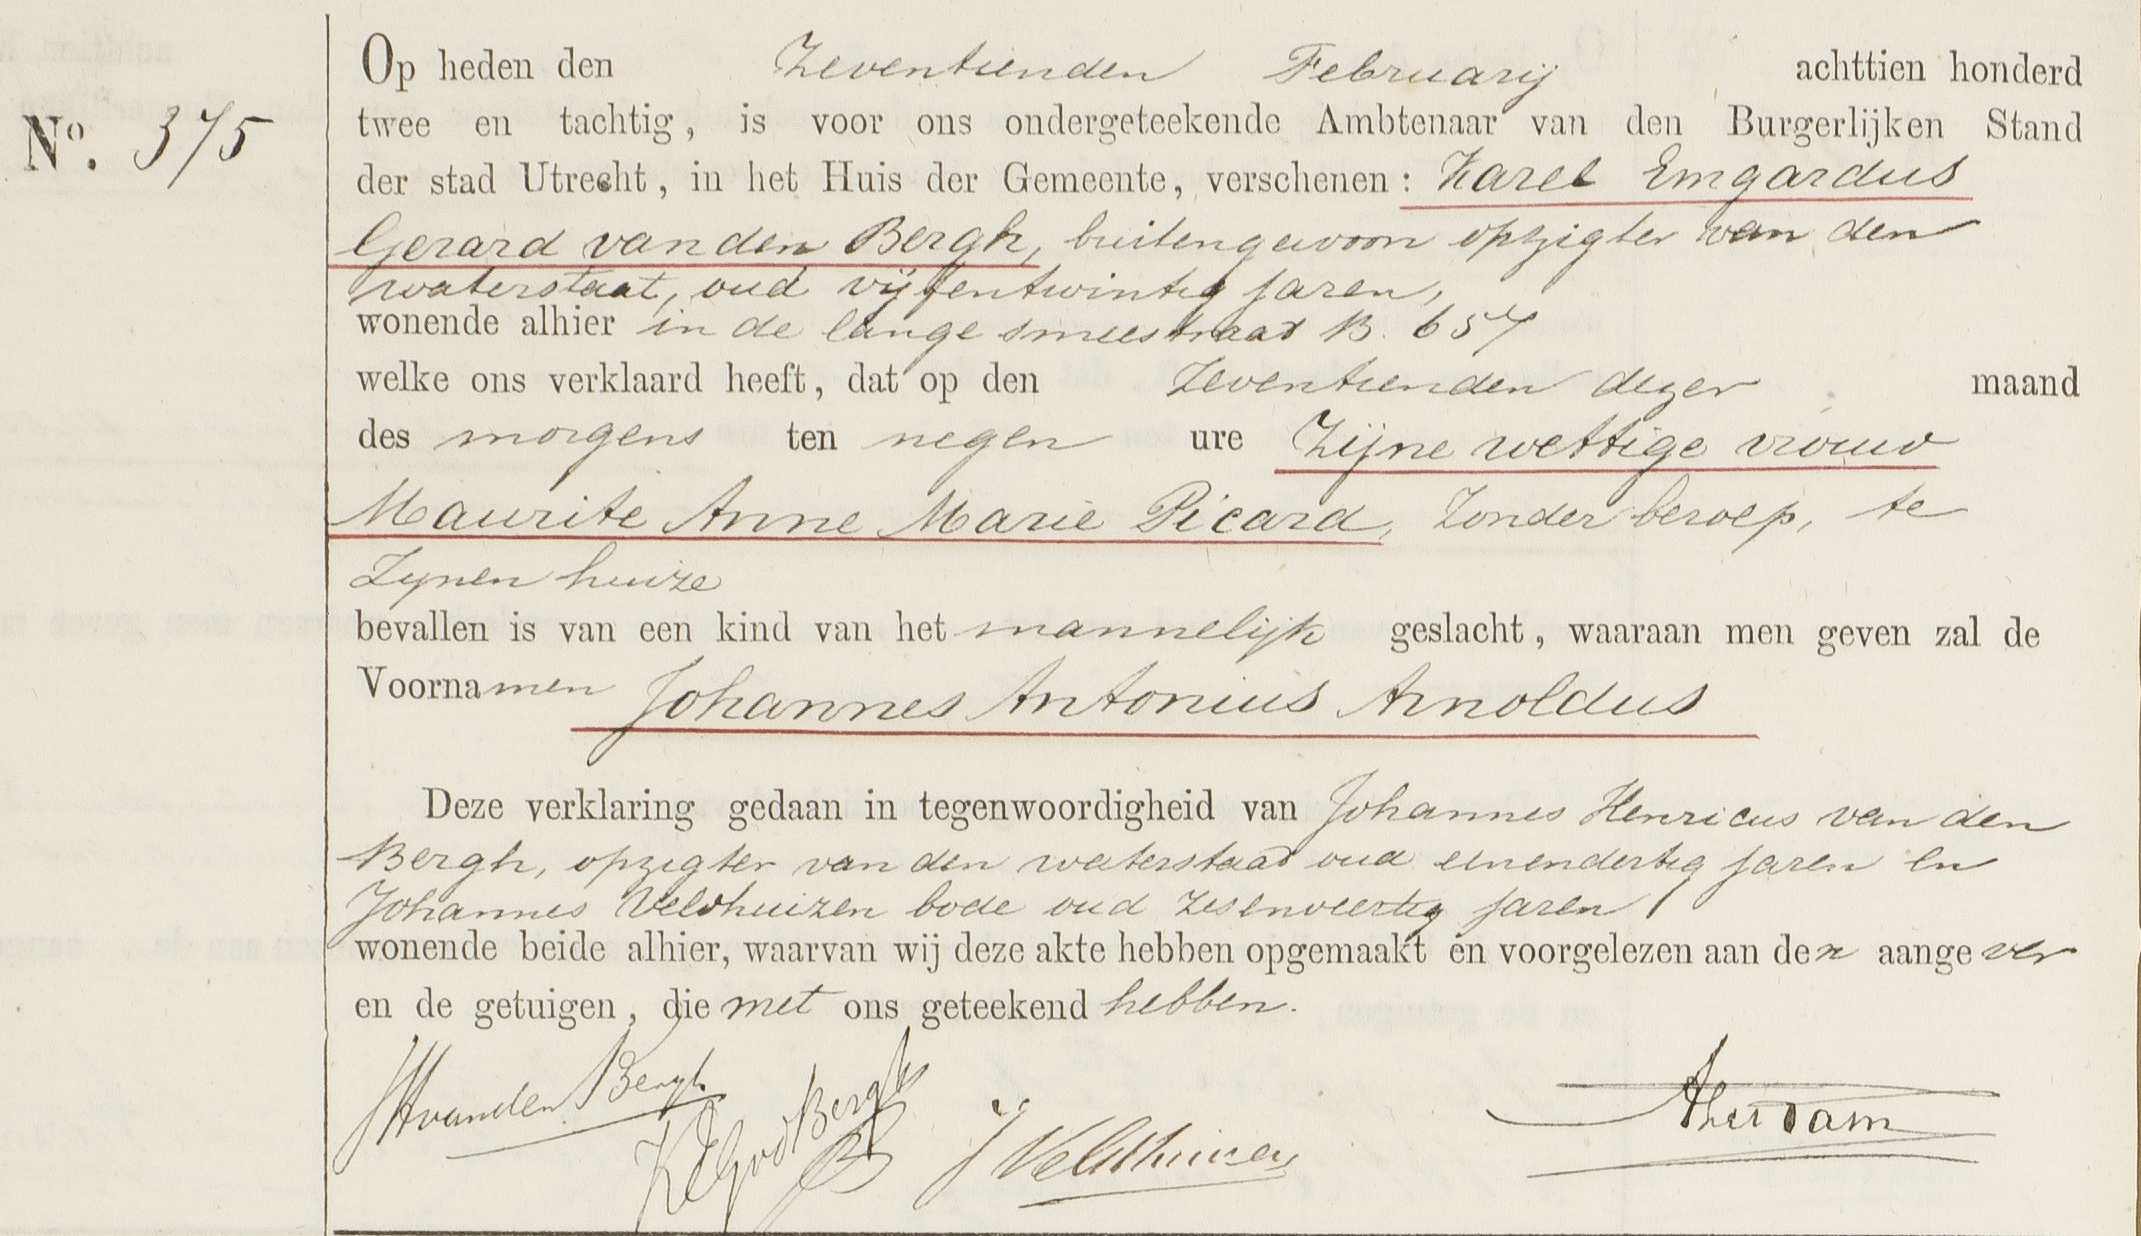 Op heden den Zeventienden Februarij achttien honderd
Nº. 375
twee en tachtig, is voor ons ondergeteekende Ambtenaar van den Burgerlijken Stand
der stad Utrecht, in het Huis der Gemeente, verschenen: Karel Emgardus
Gerard van den Bergh, buitengewoon opzigter van den
waterstaat, oud vijfentwintig jaren,
wonende alhier in de lange smeestraat B. 657
welke ons verklaard heeft, dat op den Zeventienden dezer maand
des morgens ten negen ure Zijne wettige vrouw
Maurite Anne Marie Picard, Zonder beroep, te
Zynen huize
bevallen is van een kind van het mannelijk geslacht, waaraan men geven zal de
Voornamen Johannes Antonius Arnoldus
Deze verklaring gedaan in tegenwoordigheid van Johannes Henricus van den
Bergh, opzigter van den waterstaat oud eenendertig jaren en
Johannes Veldhuizen bode oud zesenveertig jaren
wonende beide alhier, waarvan wij deze akte hebben opgemaakt en voorgelezen aan den aangever
en de getuigen, die met ons geteekend hebben.
JHvanden Bergh
KEGvdBergh
J Veldhuizen